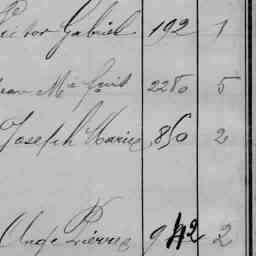 Victor Gabriel 192 1
Jean Mie 2280 5
Joseph Marie 850 2
Ange Pierre 942 2